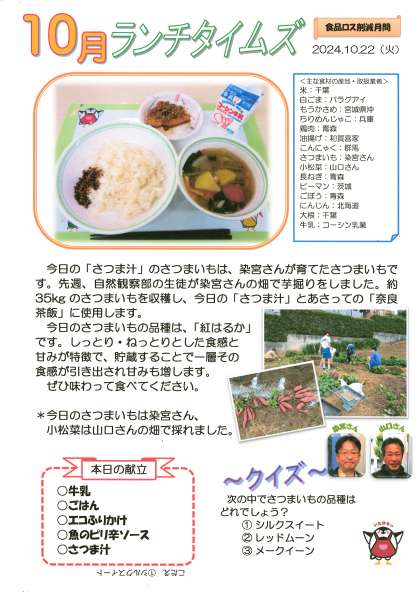 10月ランチタイムズ
食品ロス削減月間
2024.10.22（火）
＜主な食材の産地・取扱業者＞
米：千葉
白ごま：パラグアイ
もうかさめ：宮城県沖
ちりめんじゃこ：兵庫
鶏肉：青森
油揚げ：和賀喜家
こんにゃく：群馬
さつまいも：染宮さん
小松菜：山口さん
長ねぎ：青森
ピーマン：茨城
ごぼう：青森
にんじん：北海道
大根：千葉
牛乳：コーシン乳業
今日の「さつま汁」のさつまいもは、染宮さんが育てたさつまいもで
す。先週、自然観察部の生徒が染宮さんの畑で芋掘りをしました。約
35kgのさつまいもを収穫し、今日の「さつま汁」とあさっての「奈良
茶飯」に使用します。
今日のさつまいもの品種は、「紅はるか」
です。しっとり・ねっとりとした食感と
甘みが特徴で、貯蔵することで一層その
食感が引き出され甘みも増します。
ぜひ味わって食べてください。
＊今日のさつまいもは染宮さん、
小松菜は山口さんの畑で採れました。
染宮さん
山口さん
本日の献立
○牛乳
○ごはん
○エコふりかけ
○魚のピリ辛ソース
○さつま汁
～クイズ～
次の中でさつまいもの品種は
どれでしょう？
① シルクスイート
② レッドムーン
③ メークイーン
こたえ ①シルクスイート